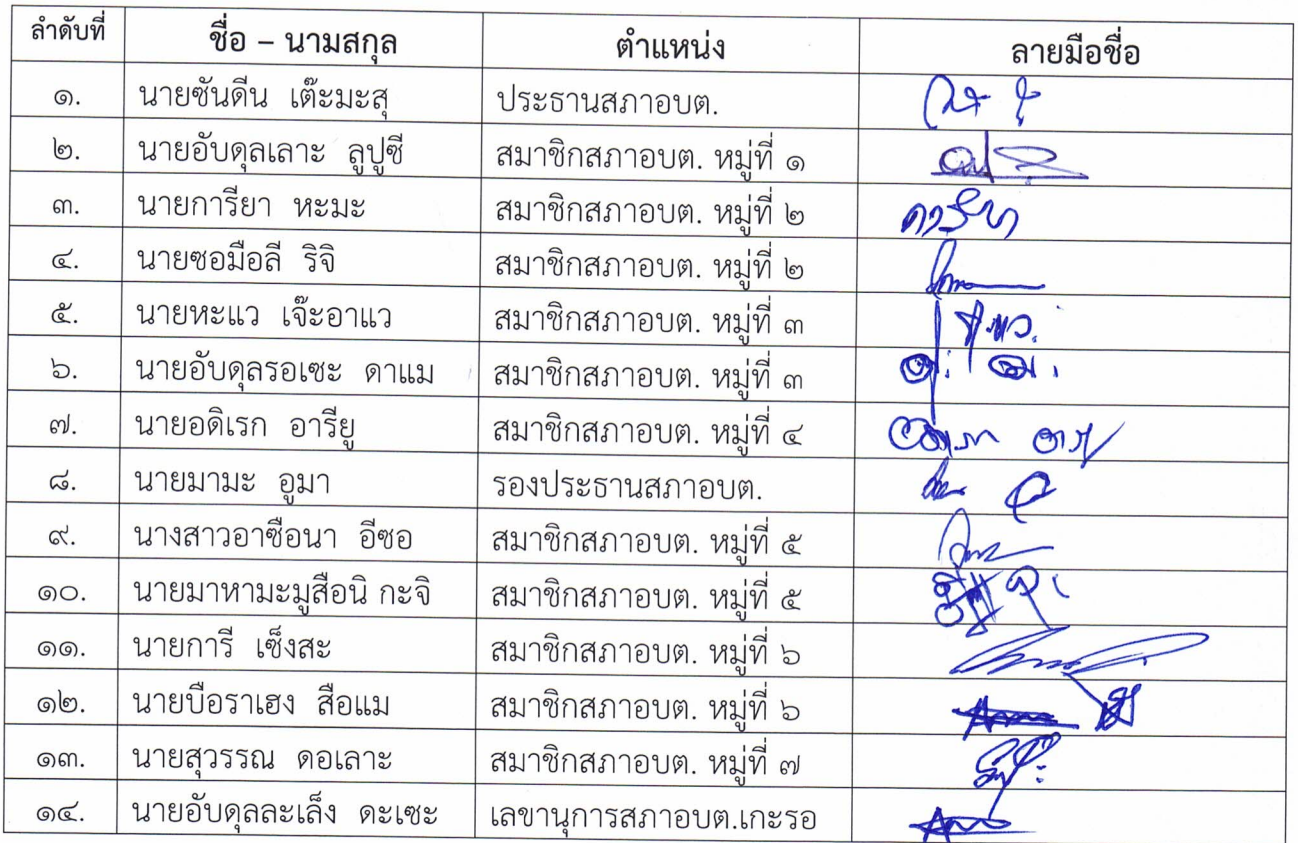 ลำดับที่ ชื่อ – นามสกุล ตำแหน่ง ลายมือชื่อ
๑. นายซันดีน เต๊ะมะสุ ประธานสภาอบต.
๒. นายอับดุลเลาะ ลูปูซี สมาชิกสภาอบต. หมู่ที่ ๑
๓. นายการียา หะมะ สมาชิกสภาอบต. หมู่ที่ ๒
๔. นายซอมือลี ริจิ สมาชิกสภาอบต. หมู่ที่ ๒
๕. นายหะแว เจ๊ะอาแว สมาชิกสภาอบต. หมู่ที่ ๓
๖. นายอับดุลรอเซะ ดาแม สมาชิกสภาอบต. หมู่ที่ ๓
๗. นายอดิเรก อารียู สมาชิกสภาอบต. หมู่ที่ ๔
๘. นายมามะ อูมา รองประธานสภาอบต.
๙. นางสาวอาซือนา อีซอ สมาชิกสภาอบต. หมู่ที่ ๕
๑๐. นายมาหามะมูสือนิ กะจิ สมาชิกสภาอบต. หมู่ที่ ๕
๑๑. นายการี เซ็งสะ สมาชิกสภาอบต. หมู่ที่ ๖
๑๒. นายบือราเฮง สือแม สมาชิกสภาอบต. หมู่ที่ ๖
๑๓. นายสุวรรณ ดอเลาะ สมาชิกสภาอบต. หมู่ที่ ๗
๑๔. นายอับดุลละเล็ง ดะเซะ เลขานุการสภาอบต.เกะรอ